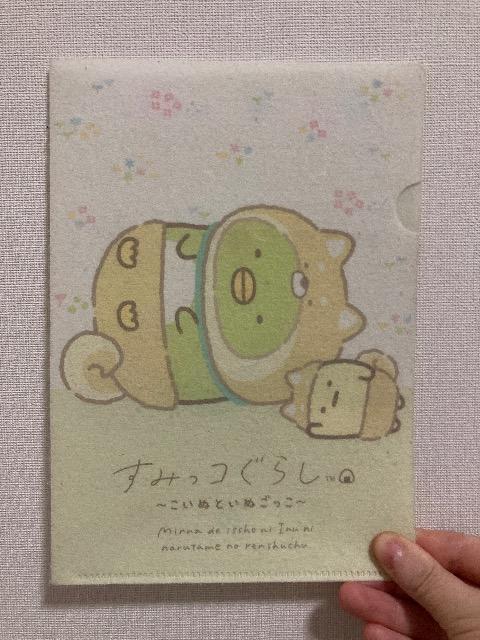 すみっコぐらし™
～こいぬといぬごっこ～
Minna de issho ni Inu ni
narutame no renshuchu